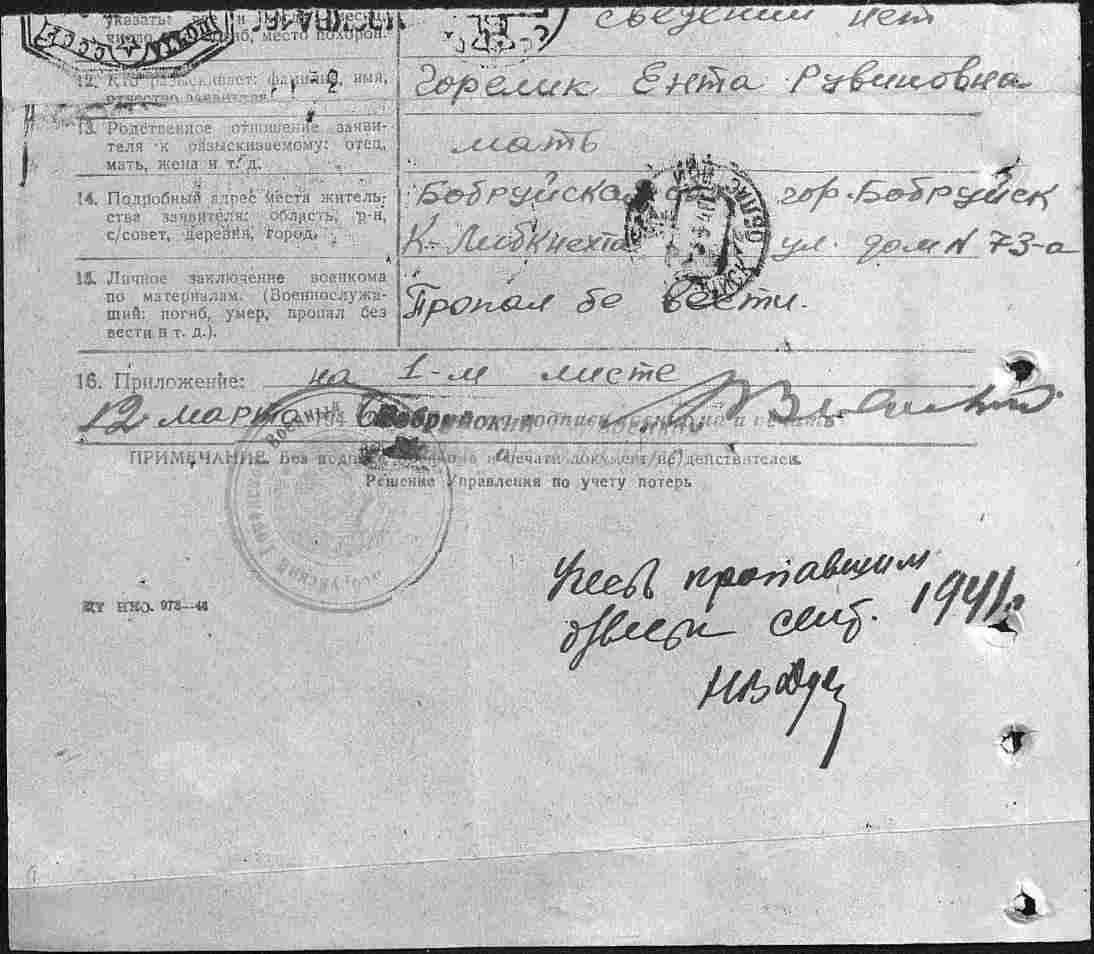 указать:
сведений нет
число
место похорон.
СССР
12. Кто разыскивает: фамилия, имя,
отчество заявителя.
Горелик Ента Рувиновна
13. Родственное отношение заяви-
теля к разыскиваемому: отец,
мать, жена и т. д.
мать
14. Подробный адрес места житель-
ства заявителя: область, р-н,
с/совет, деревня, город.
Бобруйская гор. Бобруйск
К-Либкнехта ул. дом № 73-а
15. Личное заключение военкома
по материалам. (Военнослужа-
щий: погиб, умер, пропал без
вести и т. д.).
Пропал бе вести.
16. Приложение: на 1-м листе
12 марта 194 Бобруйский подпись военкома и печать
ПРИМЕЧАНИЕ. Без подписи и печати документ недействителен.
Решение Управления по учету потерь
Военный
НКО. 978—44
Учесть пропавшим
б/вести сент. 1941г.